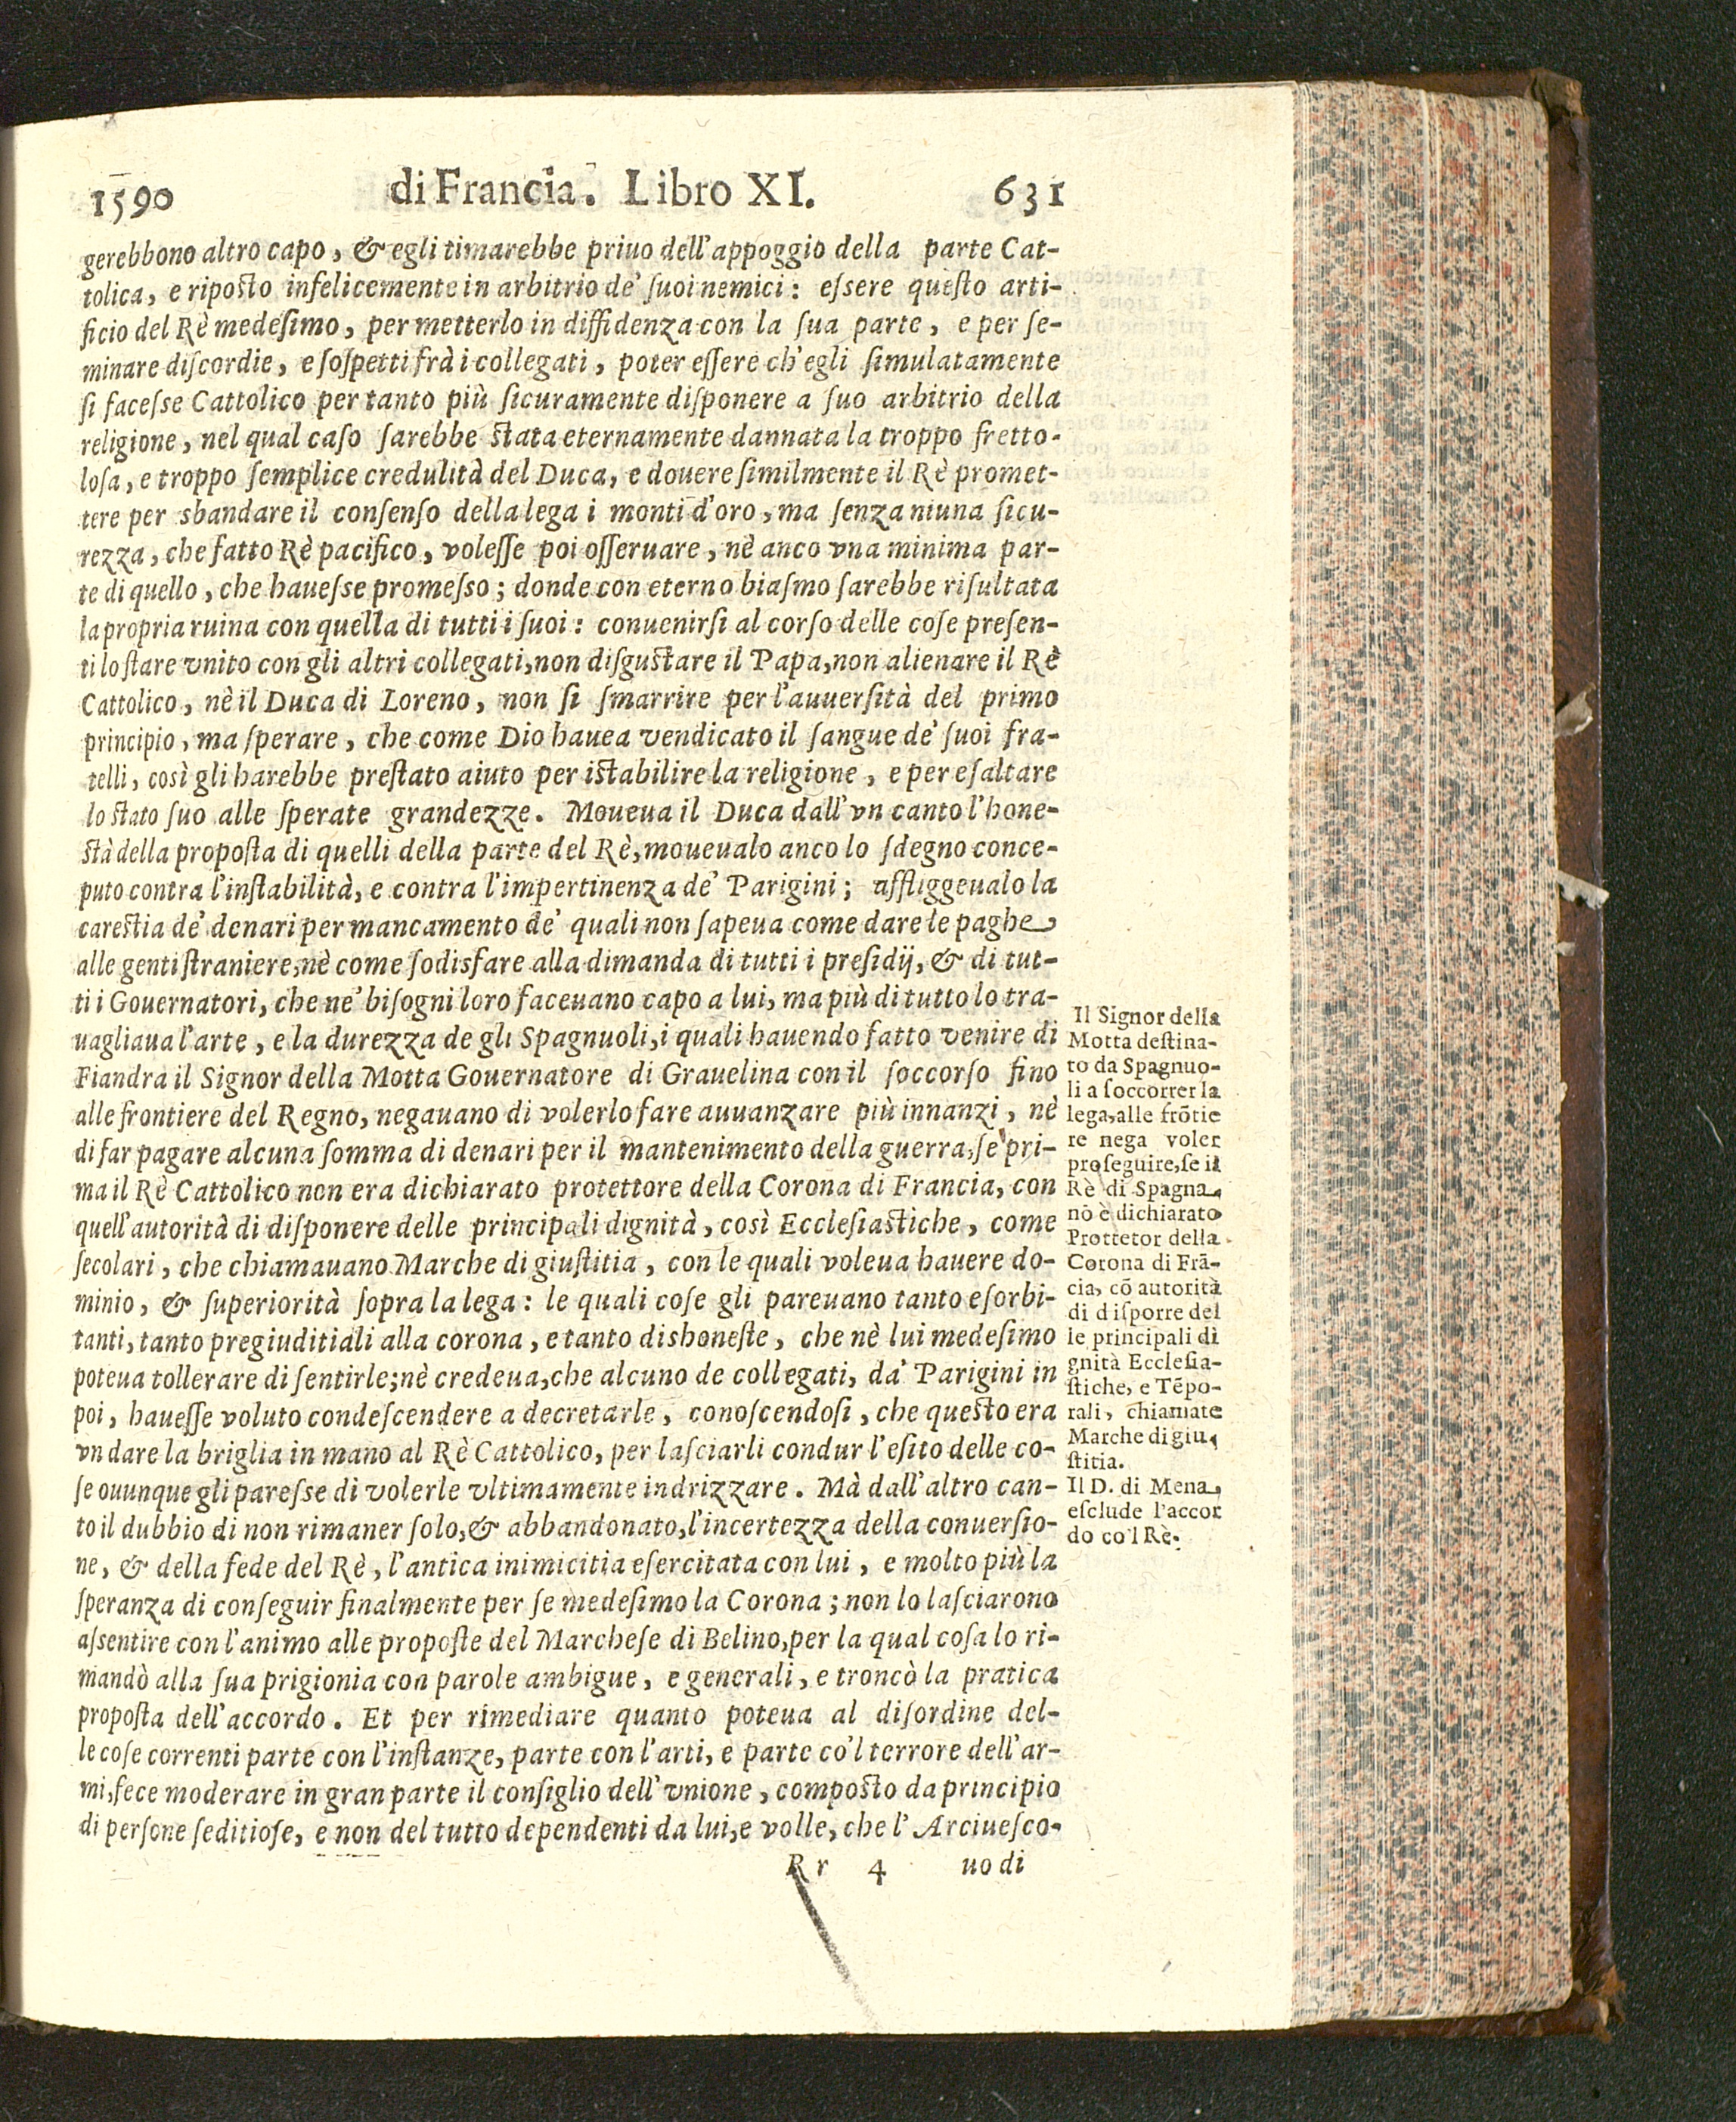 1590 di Francia. Libro XI. 631
gerebbono altro capo, & egli timarebbe priuo dell'appoggio della parte Cat-
tolica, e riposto infelicemente in arbitrio de' ſuoi nemici: eſsere queſto arti-
ficio del Rè medeſimo, per metterlo in diffidenza con la ſua parte, e per ſe-
minare diſcordie, e ſoſpetti frà i collegati, poter eſſere ch'egli ſimulatamente
ſi faceſse Cattolico per tanto più ſicuramente diſponere a ſuo arbitrio della
religione, nel qual caſo ſarebbe ſtata eternamente dannata la troppo fretto-
loſa, e troppo ſemplice credulità del Duca, e douere ſimilmente il Rè promet-
tere per sbandare il conſenſo della lega i monti d'oro, ma ſenza niuna ſicu-
rezza, che fatto Rè pacifico, voleſſe poi oſſeruare, nè anco vna minima par-
te di quello, che haueſse promeſso; donde con eterno biaſmo ſarebbe riſultata
la propria ruina con quella di tutti i ſuoi: conuenirſi al corſo delle coſe preſen-
ti lo ſtare vnito con gli altri collegati, non diſguſtare il Papa, non alienare il Rè
Cattolico, nè il Duca di Loreno, non ſi ſmarrire per l'auuerſità del primo
principio, ma ſperare, che come Dio hauea vendicato il ſangue de' ſuoi fra-
telli, così gli harebbe preſtato aiuto per iſtabilire la religione, e per eſaltare
lo ſtato ſuo alle ſperate grandezze. Moueua il Duca dall'vn canto l'hone-
ſtà della propoſta di quelli della parte del Rè, moueualo anco lo ſdegno conce-
puto contra l'inſtabilità, e contra l'impertinenza de' Parigini; affliggeualo la
careſtia de' denari per mancamento de' quali non ſapeua come dare le paghe
alle genti ſtraniere, nè come ſodisfare alla dimanda di tutti i preſidij, & di tut-
ti i Gouernatori, che ne' biſogni loro faceuano capo a lui, ma più di tutto lo tra-
uagliaua l'arte, e la durezza de gli Spagnuoli, i quali hauendo fatto venire di
Fiandra il Signor della Motta Gouernatore di Grauelina con il ſoccorſo fino
alle frontiere del Regno, negauano di volerlo fare auuanzare più innanzi, nè
di far pagare alcuna ſomma di denari per il mantenimento della guerra, ſe pri-
ma il Rè Cattolico non era dichiarato protettore della Corona di Francia, con
quell'autorità di diſponere delle principali dignità, così Eccleſiaſtiche, come
ſecolari, che chiamauano Marche di giuſtitia, con le quali voleua hauere do-
minio, & ſuperiorità ſopra la lega: le quali coſe gli pareuano tanto eſorbi-
tanti, tanto pregiuditiali alla corona, e tanto dishoneſte, che nè lui medeſimo
poteua tollerare di ſentirle; nè credeua, che alcuno de collegati, da' Parigini in
poi, haueſſe voluto condeſcendere a decretarle, conoſcendoſi, che queſto era
vn dare la briglia in mano al Rè Cattolico, per laſciarli condur l'eſito delle co-
ſe ouunque gli pareſse di volerle vltimamente indrizzare. Mà dall'altro can-
to il dubbio di non rimaner ſolo, & abbandonato, l'incertezza della conuerſio-
ne, & della fede del Rè, l'antica inimicitia eſercitata con lui, e molto più la
ſperanza di conſeguir finalmente per ſe medeſimo la Corona; non lo laſciarono
aſsentire con l'animo alle propoſte del Marcheſe di Belino, per la qual coſa lo ri-
mandò alla ſua prigionia con parole ambigue, e generali, e troncò la pratica
propoſta dell'accordo. Et per rimediare quanto poteua al diſordine del-
le coſe correnti parte con l'inſtanze, parte con l'arti, e parte co'l terrore dell'ar-
mi, fece moderare in gran parte il conſiglio dell'vnione, compoſto da principio
di perſone ſeditioſe, e non del tutto dependenti da lui, e volle, che l'Arciueſco-
Rr 4 uo di
Il Signor della
Motta deſtina-
to da Spagnuo-
li a ſoccorrer la
lega, alle frõtie
re nega voler
proſeguire, ſe il
Rè di Spagna
nõ è dichiarato
Prottetor della
Corona di Frã-
cia, cõ autorità
di diſporre del
le principali di
gnità Eccleſia-
ſtiche, e Tẽpo-
rali, chiamate
Marche di giu-
ſtitia.
Il D. di Mena
eſclude l'accor
do co'l Rè.